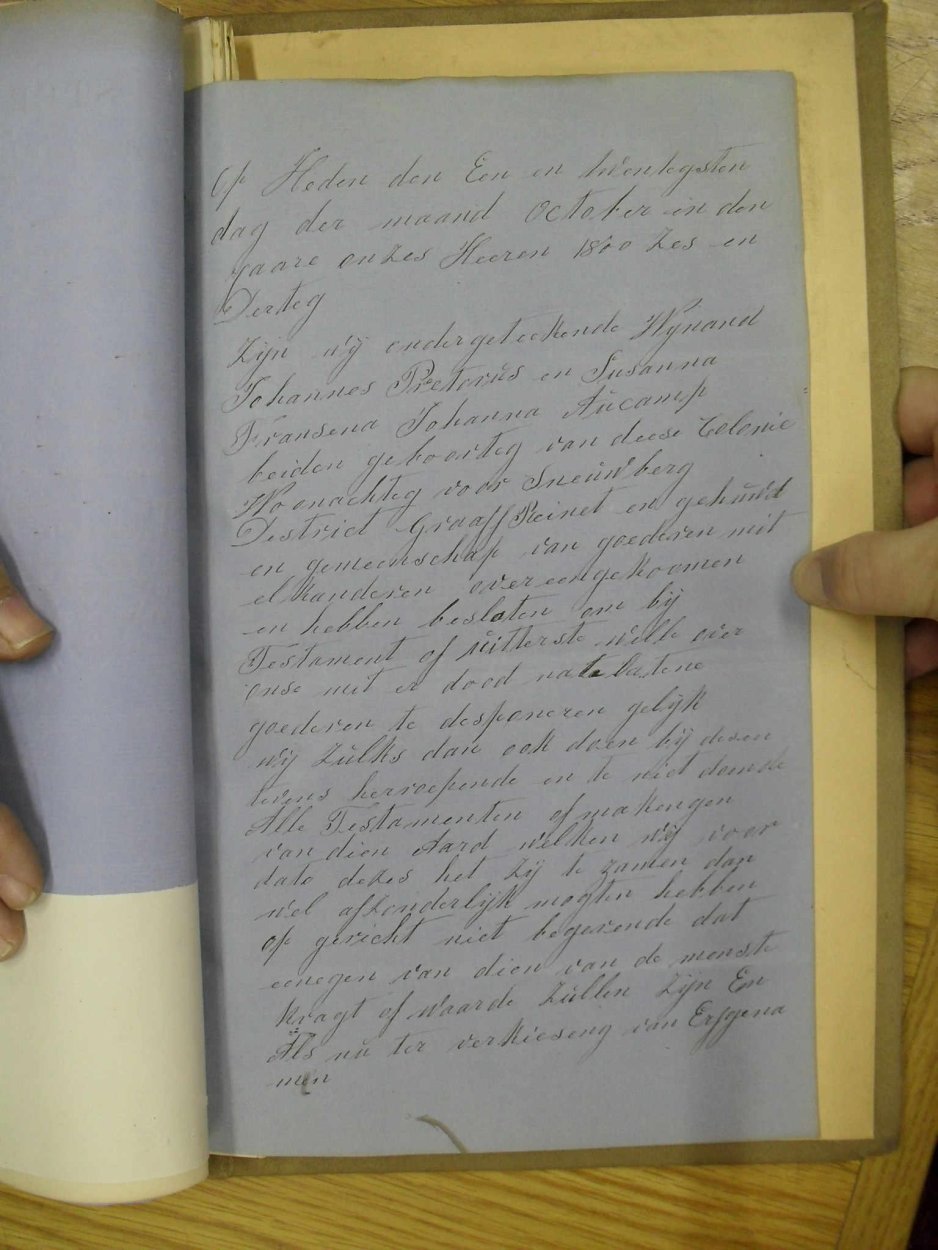 Op Heden den Een en twentegsten
dag der maand October in den
yaare onzes Heeren 1800 Zes en
Derteg
Zijn wij ondergeteekende Wijnand
Johannes Pretorüs en Susanna
Fransena Johanna Aücamp
beiden geboorteg van deese Colonie
Woonachteg voor Sneüwberg
Destrict Graaff Reinet en gehüwt
en gemeenschap van goederen mit
elkanderen overeengekoomen
en hebben besloten om bij
Testament of üitterste wille over
onse mit er dood na te latene
goederen te desponeren gelijk
wij Zülks dan ook doen bij desen
tevens herroepende en te niet doende
Alle Testamenten of makengen
van dien Aard welken wij voor
dato dezes het zij te zamen dan
wel afzonderlijk mogten hebben
op gericht niet begerende dat
eenegen van dien van de menste
kragt of waarde Züllen Zijn En
Als nü ter verkieseng van Erfgena
men